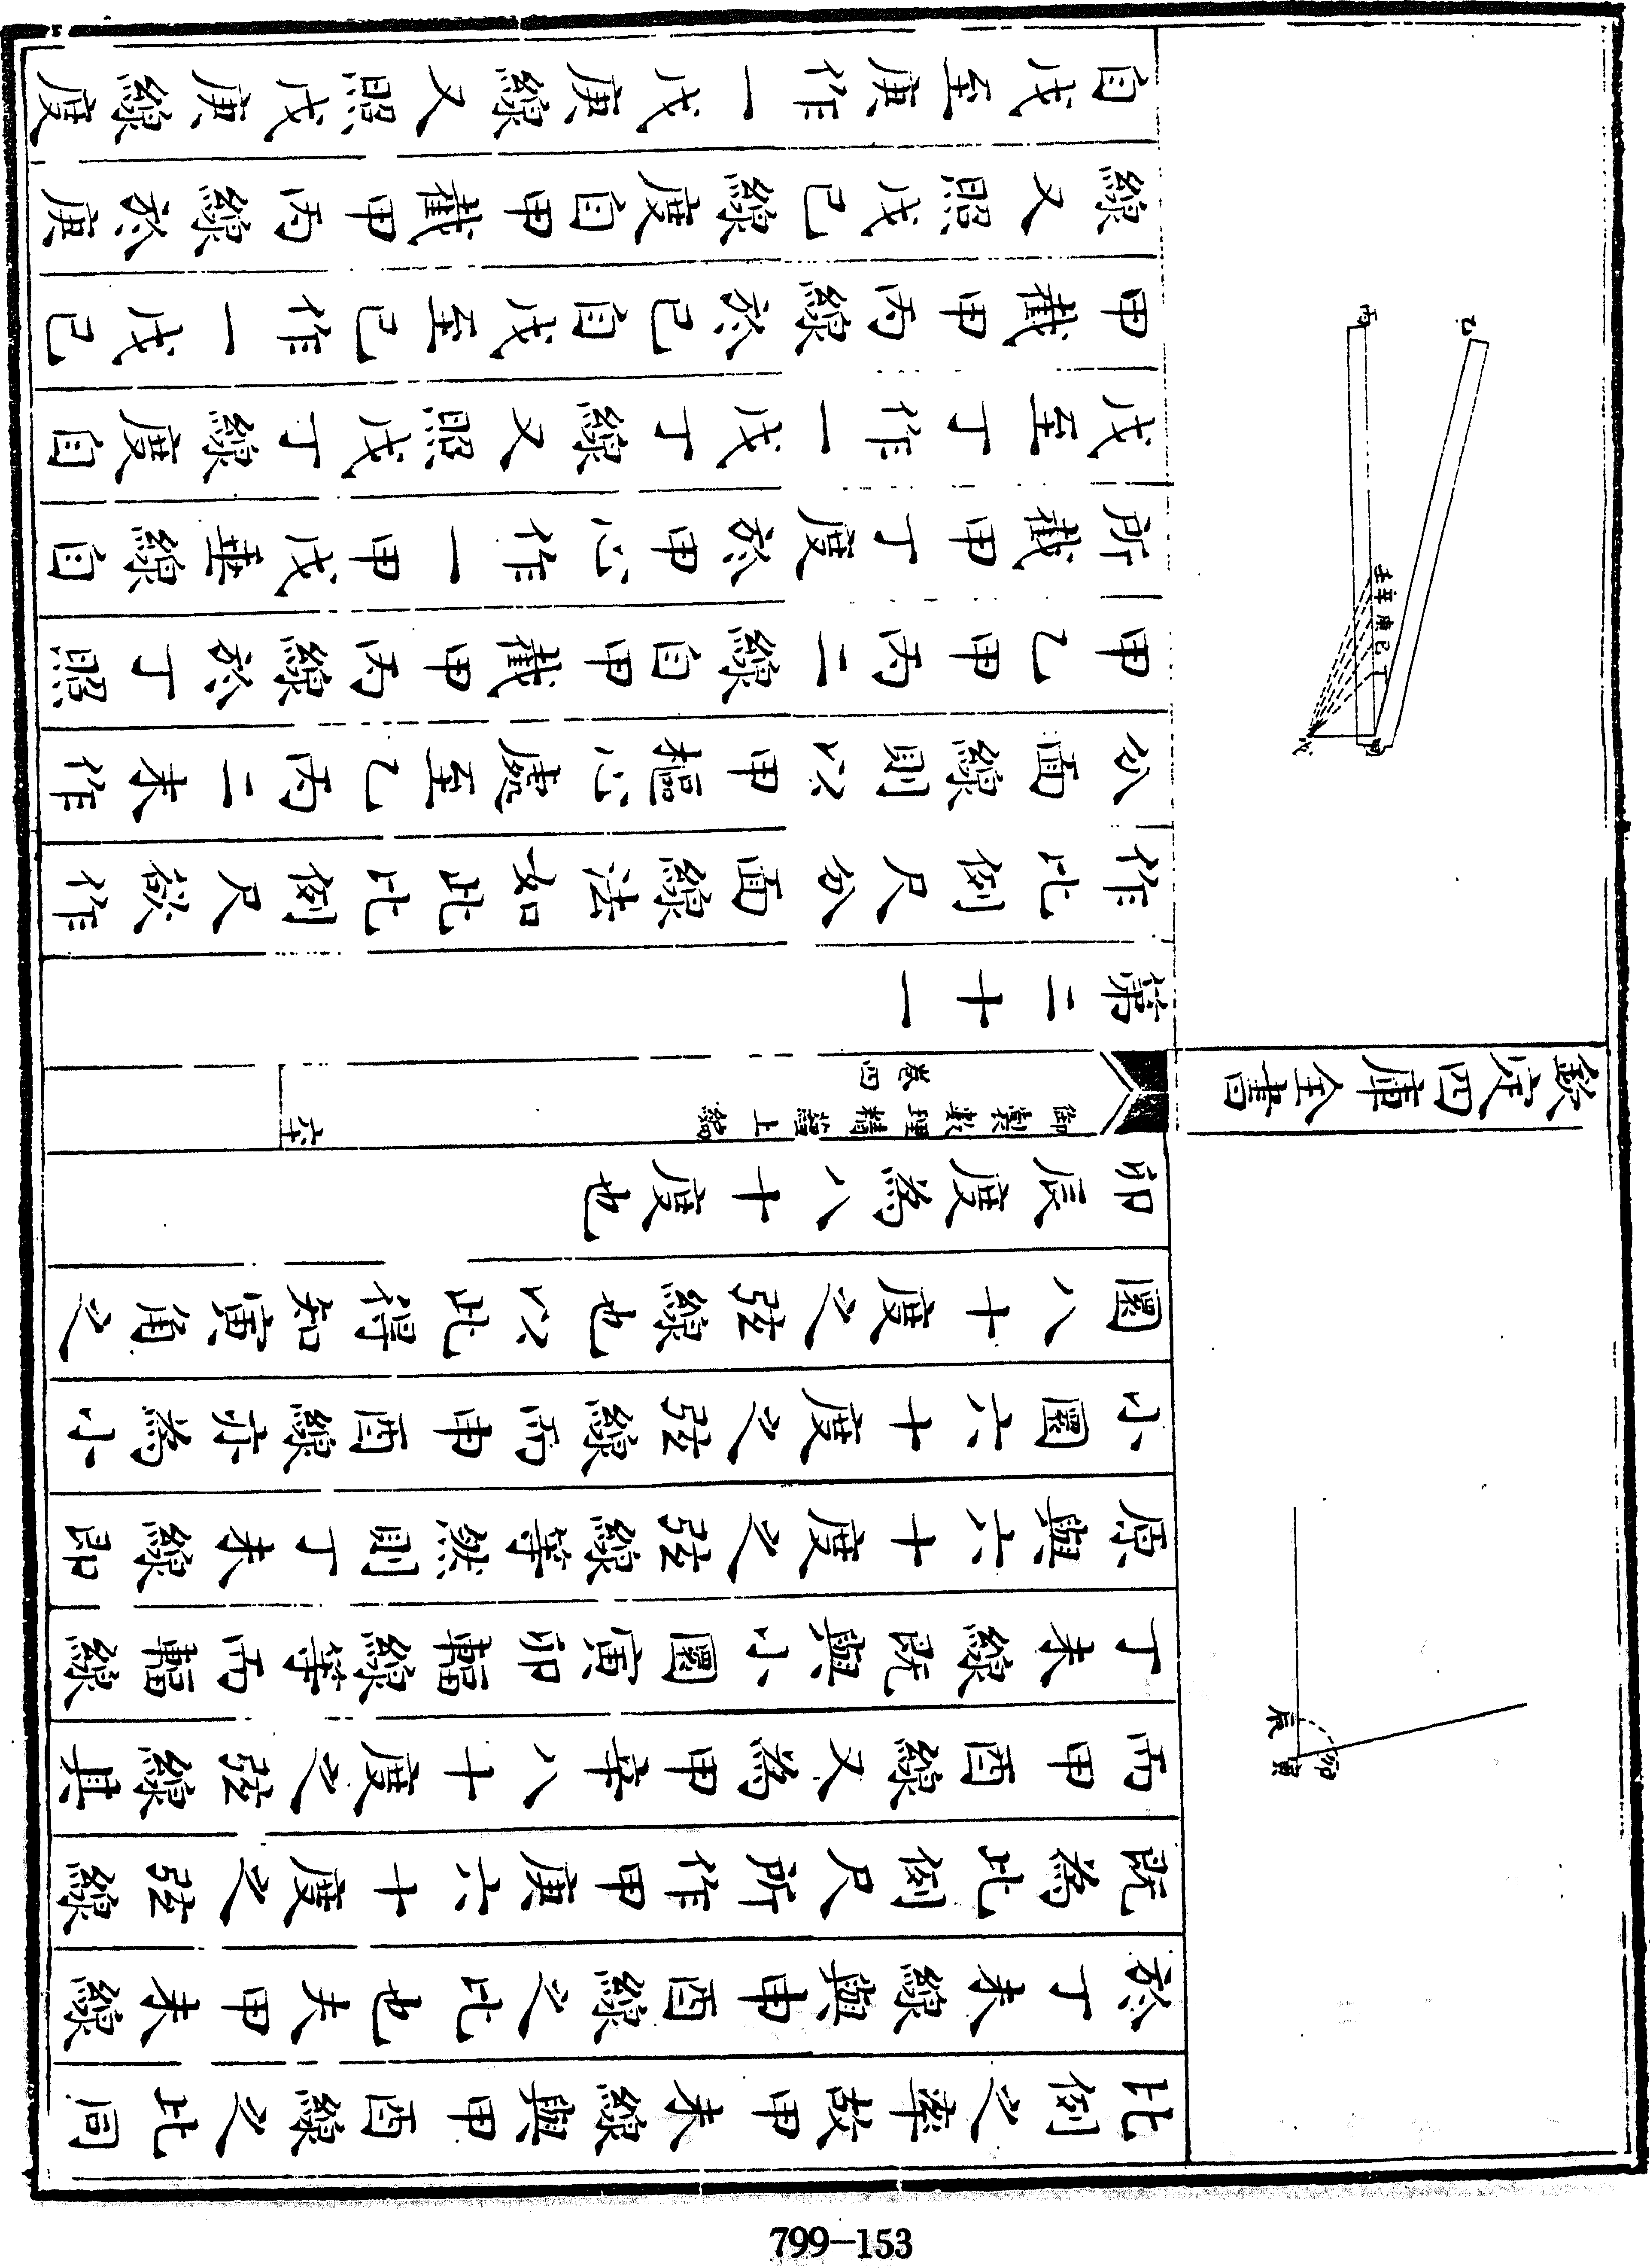 比例之率故甲未線與甲酉線之比同
於丁未線與申酉線之比也夫甲未線
既為比例尺所作甲庚六十度之弦線
而甲酉線又為甲辛八十度之弦線其
丁未線既與小圜寅卯輻線等而輻線
原與六十度之弦線等然則丁未線即
小圜六十度之弦線而申酉線亦為小
圜八十度之弦線也以此得知寅角之
卯辰度為八十度也
卯
寅
辰
欽定四庫全書
御製數理精蘊上編
卷四
六十
第二十一
作比例尺分面線法如此比例尺欲作
分面線則以甲樞心處至乙丙二末作
甲乙甲丙二線自甲截甲丙線於丁照
所截甲丁度於甲心作一甲戊垂線自
戊至丁作一戊丁線又照戊丁線度自
甲截甲丙線於己自戊至己作一戊己
線又照戊己線度自甲截甲丙線於庚
自戊至庚作一戊庚線又照戊庚線度
甲
戊
丁
己
庚
辛
壬
乙
丙
799-153